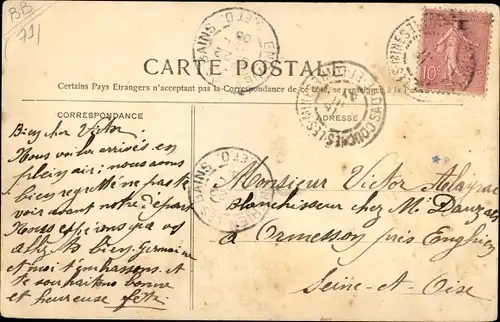 BB
71
CARTE POSTALE
Certains Pays Etrangers n'acceptant pas la Correspondance de ce côté, se renseigner à la Poste
CORRESPONDANCE
ADRESSE
10c
Bien cher Victor
Nous voila arrivés en
plein air; nous avons
bien regretté ne pas te
voir avant notre départ
Nous espérons que va
bien Germaine
et moi t'embrassons. et
te souhaitons bonne
et heureuse fête.
Monsieur Victor
Blanchisseur chez Mr Dauzas
a Ormesson près Enghien
Seine-et-Oise